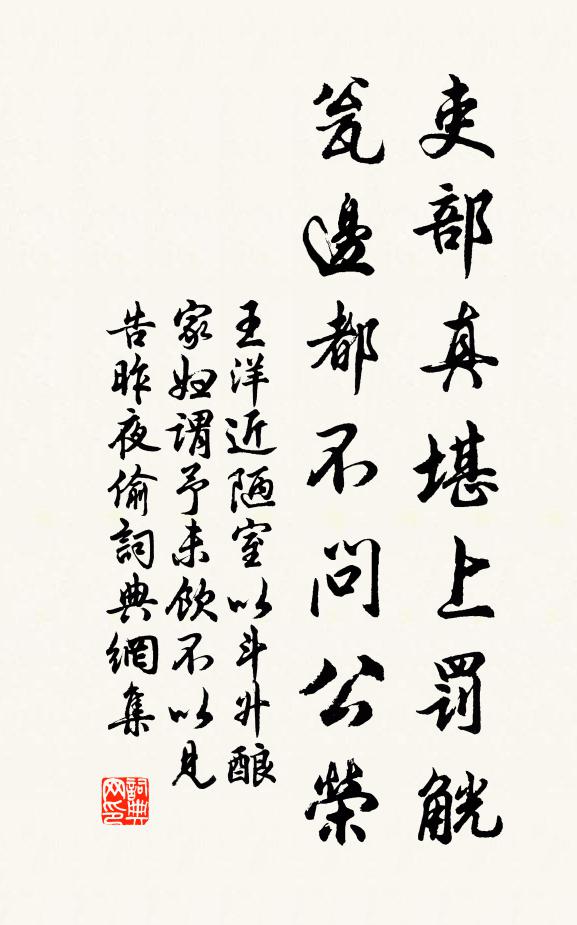 吏部真堪上罰觥
瓮邊都不問公榮
王洋近陋室以斗升酿
家妇謂予未飲不以見
告昨夜偷詞典網集
詞典网印